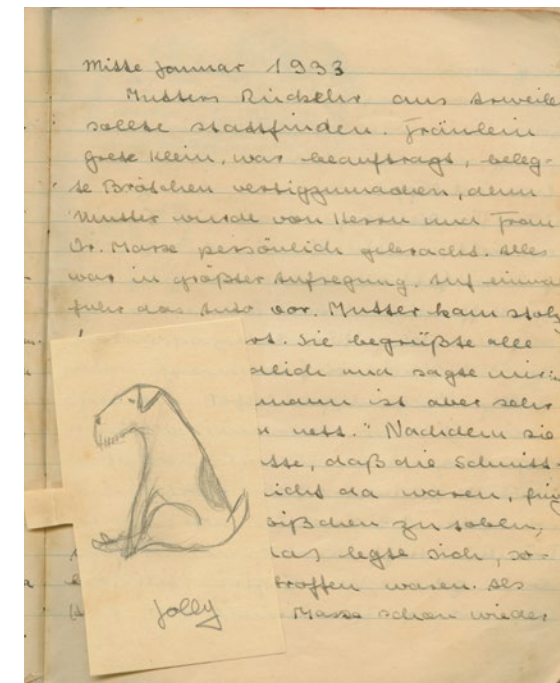 Mitte Januar 1933
Mutters Rückkehr aus Arweile
sollte stattfinden. Fräulein
Grete Klein, war beauftragt, beleg-
te Brötchen vertigzumachen, denn
Mutter wurde von Herrn und Frau
Dr. Marxe persönlich gebracht. Alles
war in größter Aufregung. Auf einma
fuhr das Auto vor. Mutter kam stolz
rt. Sie begrüßte alle
dlich und sagte mir:
mann ist aber sehr
r nett." Nachdem sie
tte, daß die Schnitt-
icht da waren, fing
bißchen zu toben,
das legte sich, so-
troffen waren. Als
Marxe schon wieder
Jolly